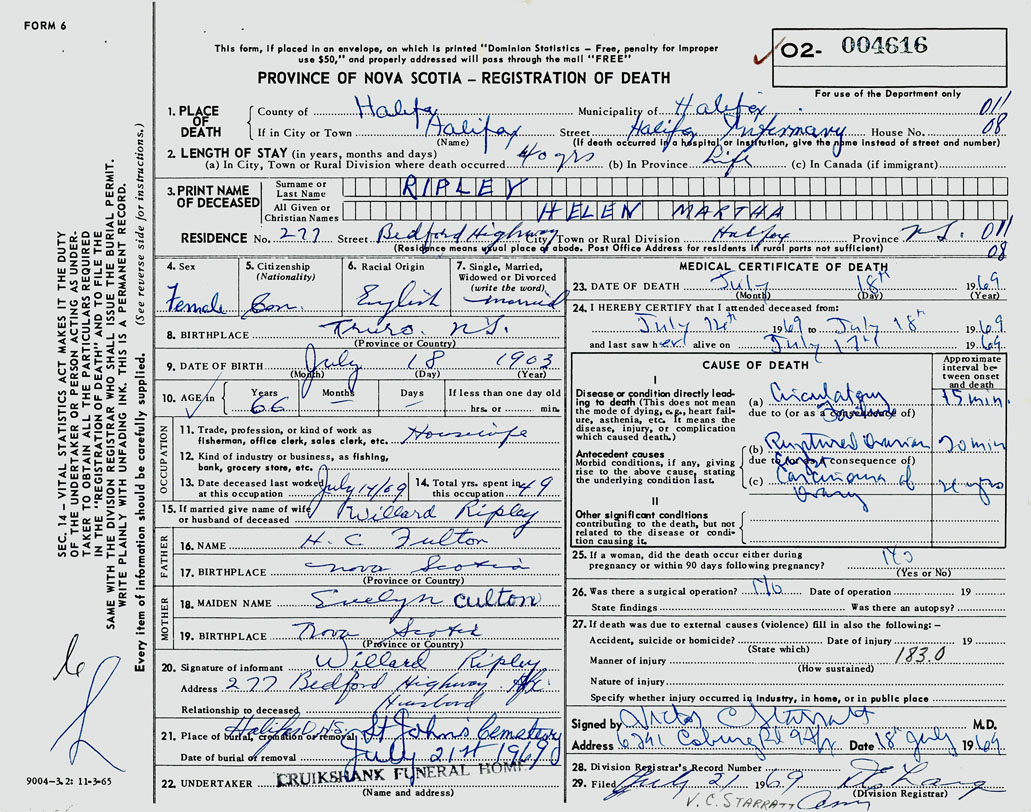 FORM 6
This form, if placed in an envelope, on which is printed "Dominion Statistics – Free, penalty for improper
use $50," and properly addressed will pass through the mail "FREE"
PROVINCE OF NOVA SCOTIA – REGISTRATION OF DEATH
02- 004616
For use of the Department only
1. PLACE OF DEATH
County of Halifax Municipality of Halifax 011
If in City or Town Halifax Street Halifax Infirmary House No. 08
(Name) (If death occurred in a hospital or institution, give the name instead of street and number)
2. LENGTH OF STAY (in years, months and days)
(a) In City, Town or Rural Division where death occurred 40 yrs (b) In Province Life (c) In Canada (if immigrant)
3. PRINT NAME OF DECEASED
Surname or Last Name RIPLEY
All Given or Christian Names HELEN MARTHA
RESIDENCE No. 277 Street Bedford Highway City, Town or Rural Division Halifax Province N.S. 011
(Residence means usual place of abode. Post Office Address for residents in rural parts not sufficient) 08
4. Sex Female
5. Citizenship (Nationality) Can.
6. Racial Origin English
7. Single, Married, Widowed or Divorced (write the word) married
8. BIRTHPLACE Truro. N.S.
(Province or Country)
9. DATE OF BIRTH July 18 1903
(Month) (Day) (Year)
10. AGE in Years 66 Months Days If less than one day old hrs. or min.
OCCUPATION
11. Trade, profession, or kind of work as fisherman, office clerk, sales clerk, etc. Housewife
12. Kind of industry or business, as fishing, bank, grocery store, etc.
13. Date deceased last worked at this occupation July 17/69
14. Total yrs. spent in this occupation 49
15. If married give name of wife or husband of deceased Willard Ripley
FATHER
16. NAME H. C. Fulton
17. BIRTHPLACE Nova Scotia
(Province or Country)
MOTHER
18. MAIDEN NAME Evelyn Culton
19. BIRTHPLACE Nova Scotia
(Province or Country)
20. Signature of informant Willard Ripley
Address 277 Bedford Highway Hfx.
Relationship to deceased Husband
21. Place of burial, cremation or removal Halifax N.S. St John's Cemetery
Date of burial or removal July 21st 1969
22. UNDERTAKER CRUIKSHANK FUNERAL HOME
(Name and address)
MEDICAL CERTIFICATE OF DEATH
23. DATE OF DEATH July 18th 1969
(Month) (Day) (Year)
24. I HEREBY CERTIFY that I attended deceased from:
July 12th 1969 to July 18th 1969
and last saw her alive on July 17th 1969.
CAUSE OF DEATH
Approximate interval between onset and death
I
Disease or condition directly leading to death (This does not mean the mode of dying, e.g., heart failure, asthenia, etc. It means the disease, injury, or complication which caused death.)
(a) Circulatory Failure 15 min.
due to (or as a consequence of)
Antecedent causes
Morbid conditions, if any, giving rise to the above cause, stating the underlying condition last.
(b) Ruptured Ovarian Cyst 20 min
due to (or as a consequence of)
(c) Carcinoma of Ovary yrs
II
Other significant conditions contributing to the death, but not related to the disease or condition causing it.
25. If a woman, did the death occur either during pregnancy or within 90 days following pregnancy? No
(Yes or No)
26. Was there a surgical operation? No Date of operation 19
State findings Was there an autopsy?
27. If death was due to external causes (violence) fill in also the following:–
Accident, suicide or homicide? Date of injury 19
(State which)
Manner of injury 183.0
(How sustained)
Nature of injury
Specify whether injury occurred in industry, in home, or in public place
Signed by Victor C Starratt M.D.
Address 6241 Coburg Rd Hfx. Date 18th July 1969.
28. Division Registrar's Record Number
29. Filed July 21 1969
(Division Registrar)
V. C. STARRATT
SEC. 14 – VITAL STATISTICS ACT MAKES IT THE DUTY
OF THE UNDERTAKER OR PERSON ACTING AS UNDER-
TAKER TO OBTAIN ALL THE PARTICULARS REQUIRED
IN THE "REGISTRATION OF DEATH" AND TO FILE THE
SAME WITH THE DIVISION REGISTRAR WHO SHALL ISSUE THE BURIAL PERMIT.
WRITE PLAINLY WITH UNFADING INK. THIS IS A PERMANENT RECORD.
Every item of information should be carefully supplied. (See reverse side for instructions.)
9004-3.2: 11-3-65